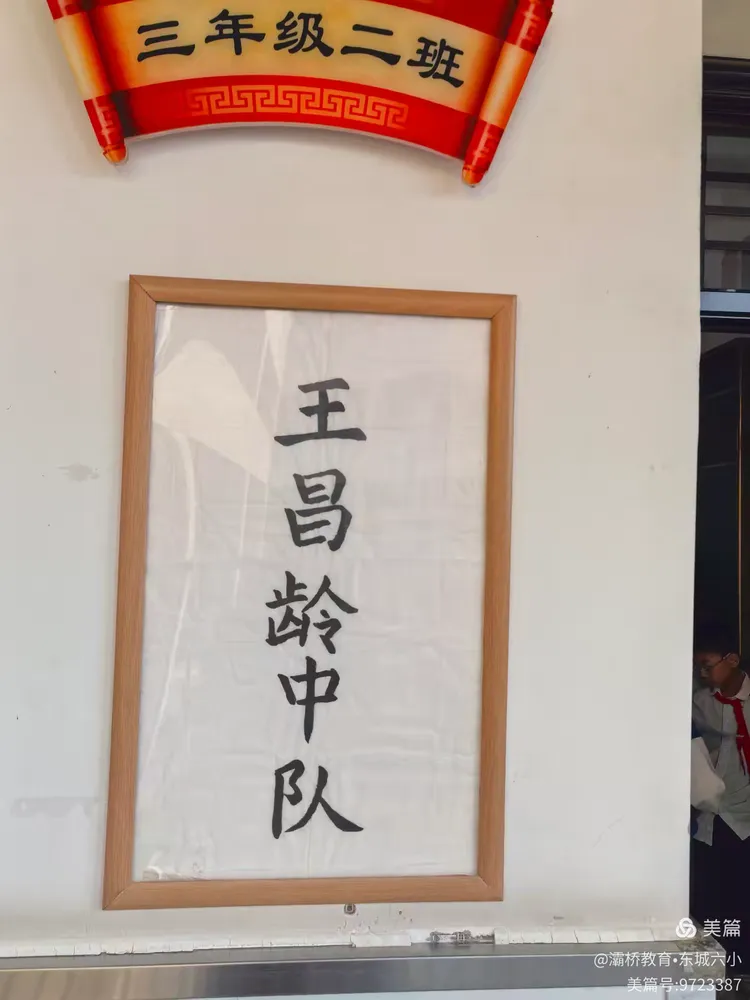 三年级二班
王昌龄中队
美篇
@灞桥教育•东城六小
美篇号:9723387